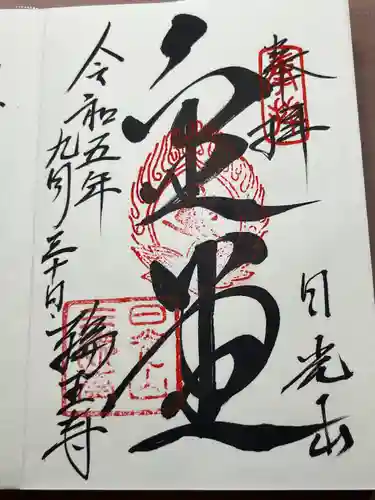 奉拝
日光山
金堂
令和五年九月三十日
輪王寺